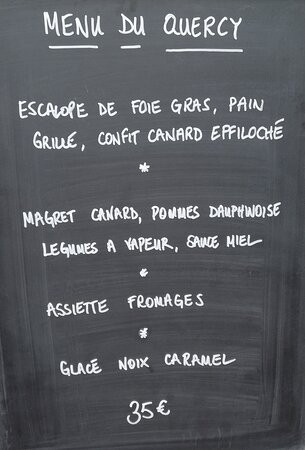 MENU DU QUERCY
ESCALOPE DE FOIE GRAS, PAIN
GRILLÉ, CONFIT CANARD EFFILOCHÉ
*
MAGRET CANARD, POMMES DAUPHINOISE
LEGUMES A VAPEUR, SAUCE MIEL
*
ASSIETTE FROMAGES
*
GLACE NOIX CARAMEL
35€